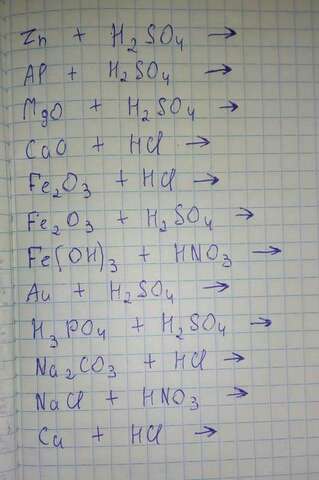 Zn + H₂SO₄ →
Al + H₂SO₄ →
MgO + H₂SO₄ →
CaO + HCl →
Fe₂O₃ + HCl →
Fe₂O₃ + H₂SO₄ →
Fe(OH)₃ + HNO₃ →
Au + H₂SO₄ →
H₃PO₄ + H₂SO₄ →
Na₂CO₃ + HCl →
NaCl + HNO₃ →
Cu + HCl →